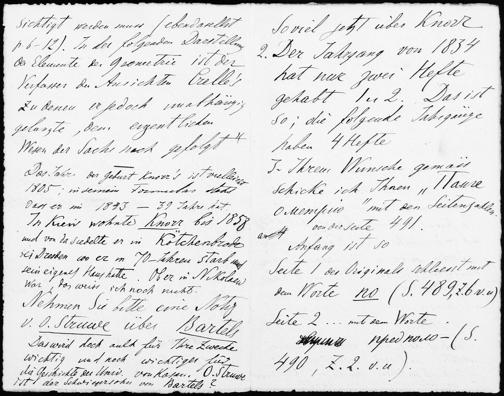 sichtigt werden muss (ebendaselbst
p 6-12). In der folgenden Darstellung
der Elemente der Geometrie ist der
Verfasser den Ansichten Crelle's
zu denen er jedoch unabhängig
gelangte, dem eigentlichen
Wesen der Sache nach gefolgt"
Das Jahr der Geburt Knorr's ist vielleicht
1805; in seinem
dass er in 18 3 — 39 Jahre hat
In Kiew wohnte Knorr bis 1858
und von da siedelte er in Kötchenbroda
bei Dresden wo er im 70 Jahren starb
sein eigenes Ob er in Nikolaew
war, weiss ich noch nicht.
Nehmen Sie bitte eine Notiz
v. O. Struve über Bartels
Das wird doch auch für Ihre Zwecke
wichtig und noch wichtiger für
die Geschichte der Univ. von Kasan. O. Struve
ist der Schwiegersohn von Bartels?
Soviel jetzt über Knorr
2. Der Jahrgang von 1834
hat nur zwei Hefte
gehabt 1 u 2. Das ist
so; die folgende Jahrgänge
haben 4 Hefte
3- Ihrem Wunsche gemäss
schicke ich Ihnen
mit den Seitenzahlen
491.
Anfang ist so
Seite 1 des Originals schliesst mit
dem Worte no (S. 489, Z. 6 v. u)
Seite 2 ... mit dem Worte
предполо- (S.
490, Z. 2. v. u).